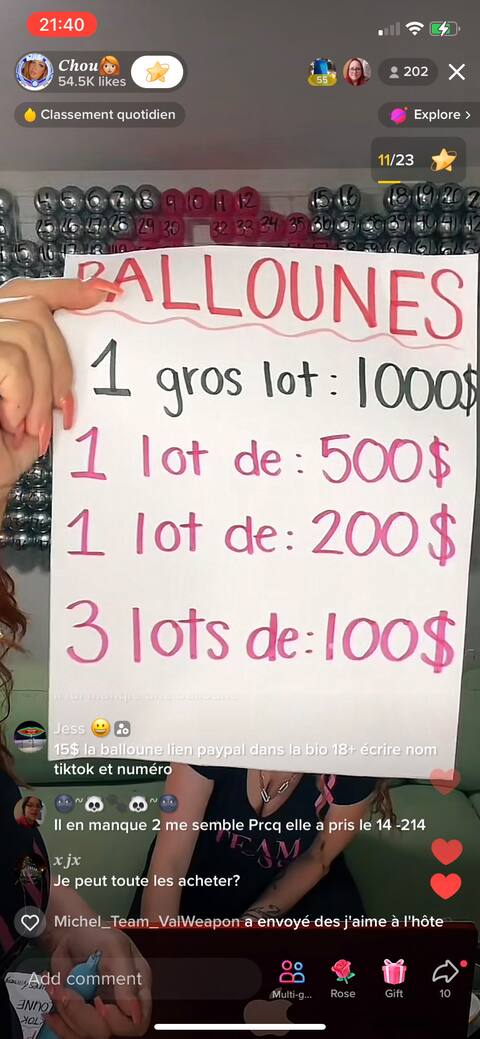 21:40
Chou
54.5K likes
55
202
Classement quotidien
Explore >
11/23
BALLOUNES
1 gros lot : 1000$
1 lot de : 500$
1 lot de : 200$
3 lots de : 100$
Jess 😀
15$ la balloune lien paypal dans la bio 18+ écrire nom
tiktok et numéro
Il en manque 2 me semble Prcq elle a pris le 14 -214
xjx
Je peut toute les acheter?
Michel_Team_ValWeapon a envoyé des j'aime à l'hôte
TEAM
Add comment
Multi-g...
Rose
Gift
10